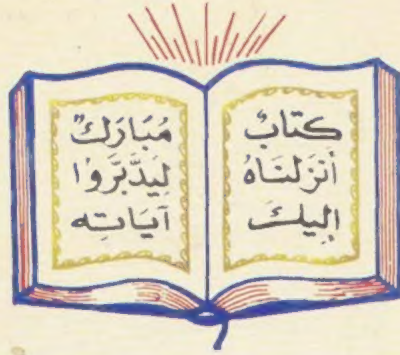 كتَابٌ
أَنزَلنَاهُ
إِليكَ
مُبَارَكٌ
لِيَدَّبَّرَوُا
آيَاتِه